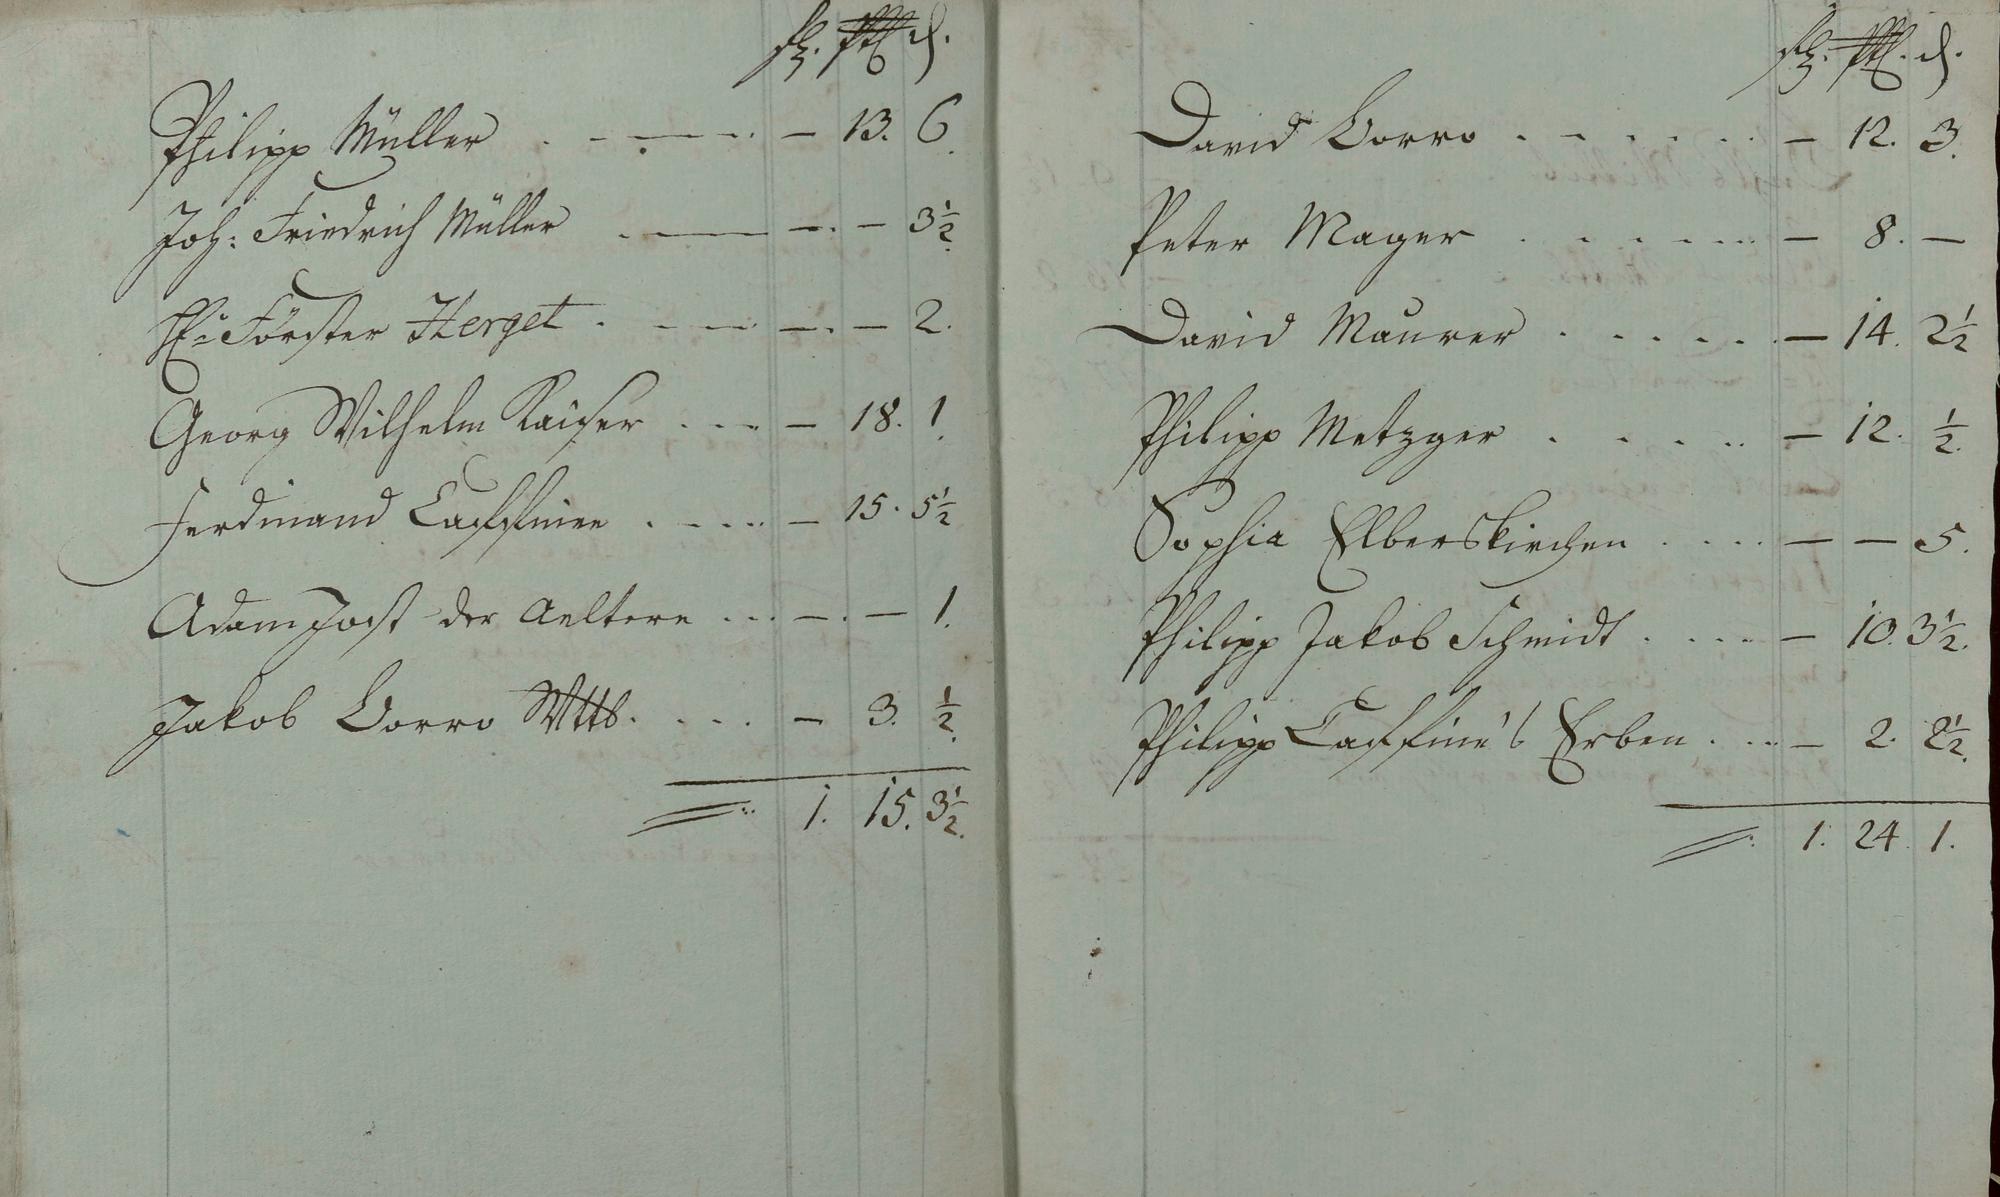 d.
Philipp Müller - 13. 6.
Joh: Friedrich Müller - - 3½.
Hr: Förster Herget - - 2.
Georg Wilhelm Kaiser - 18. 1.
Ferdinand - 15. 5½
Adam Jost der Aeltere - - 1.
Jakob Lorro Wttb. - 3. ½.
1. 15. 3½.
d.
David Lorro - 12. 3.
Peter Mager - 8. -
David Maurer - 14. 2½
Philipp Metzger - 12. ½.
Sophia Elberskirchen - - 5.
Philipp Jakob Schmidt - 10. 3½.
Philipp Erben - 2. 2½.
1. 24. 1.